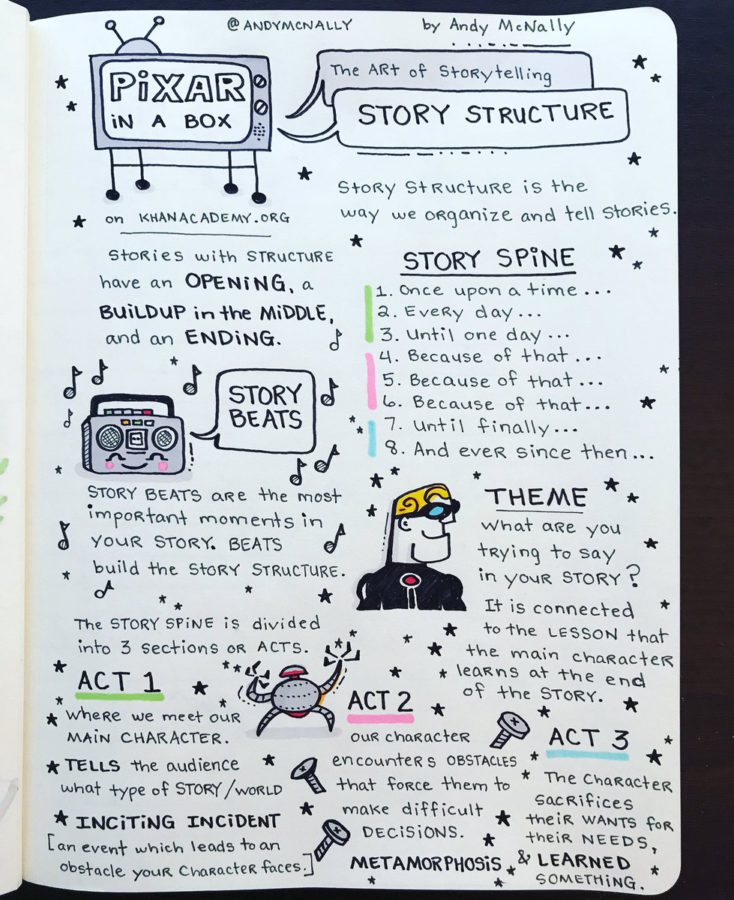 @ANDYMCNALLY
by Andy McNally
PiXAR
iN A BOX
on KHANACADEMY.ORG
The ART of Storytelling
STORY STRUCTURE
STORY STRUCTURE is the
way we organize and tell STORIES.
Stories with STRUCTURE
have an OPENING, a
BUILDUP in the MIDDLE,
and an ENDING.
STORY SPINE
1. Once upon a time...
2. Every day...
3. Until one day...
4. Because of that...
5. Because of that...
6. Because of that...
7. Until finally...
8. And ever since then...
STORY
BEATS
STORY BEATS are the most
important moments in
YOUR STORY. BEATS
build the STORY STRUCTURE.
THEME
What are you
trying to say
in your STORY?
It is connected
to the LESSON that
the main character
learns at the end
of the STORY.
The STORY SPINE is divided
into 3 sections or ACTS.
ACT 1
where we meet our
MAIN CHARACTER.
TELLS the audience
what type of STORY/WORLD
INCITING INCIDENT
[an event which leads to an
obstacle your character faces.]
ACT 2
our character
encounters OBSTACLES
that force them to
make difficult
DECISIONS.
METAMORPHOSIS
ACT 3
The character
SACRIFICES
their WANTS for
their NEEDS,
& LEARNED
SOMETHING.